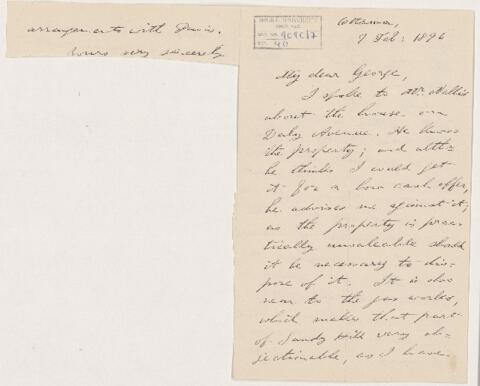 arrangements with Davis.
Yours very sincerely
Ottawa,
7 Feb: 1896
My dear George,
I spoke to Mr. Wallis
about the house on
Daly Avenue. He knows
the property; and altho'
he thinks I could get
it for a low cash offer,
he advises me against it;
as the property is prac-
tically unsaleable should
it be necessary to dis-
pose of it. It is also
near to the gas works,
which makes that part
of Sandy Hill very ob-
jectionable, as I have